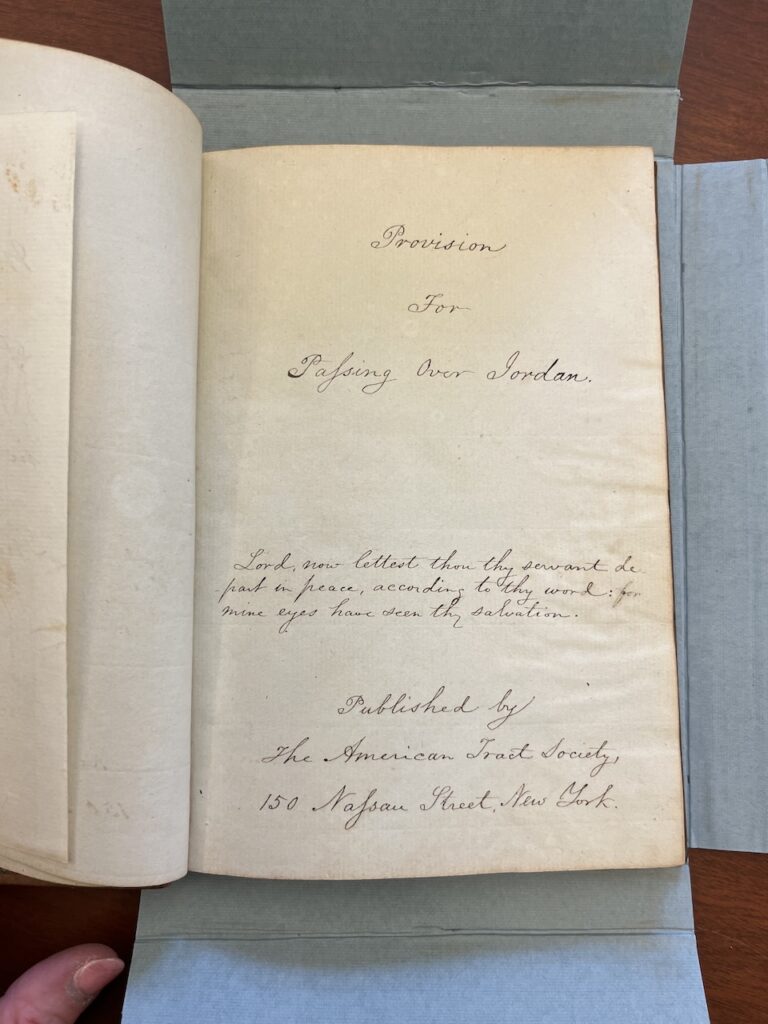 Provision
For
Paſsing Over Jordan.
Lord, now lettest thou thy servant de
part in peace, according to thy word: for
mine eyes have seen thy salvation.
Published by
The American Tract Society,
150 Naſsau Street, New York.